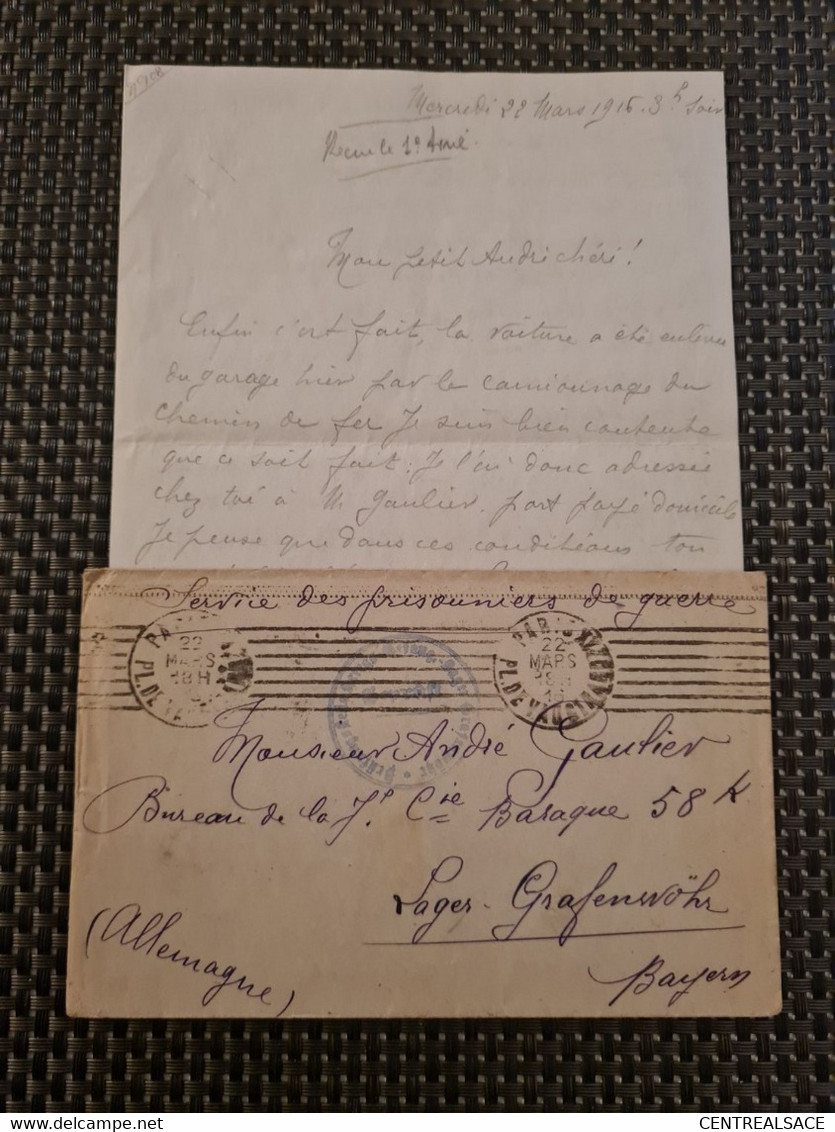 Nº 108
Mercredi 22 Mars 1916. 3h Soir
Recu le 1e Avril.
Mon petit André chéri!
Enfin c'est fait, la voiture a été enlevée
du garage hier par le camionnage du
chemin de fer Je suis bien contente
que ce soit fait. Je l'ai donc adressée
chez toi à M. Gaulier. port payé domicile
Je pense que dans ces conditions ton
Service des prisonniers de guerre
PARIS
22
MARS
18H
PL. DE
PARIS
22
MARS
18H
PL. DE VAUGIRARD
Monsieur André Gaulier
Bureau de la 7e Cie Baraque 58 K
Lager-Grafenwöhr
(Allemagne)
Bayern
Delcampe.net
CENTREALSACE